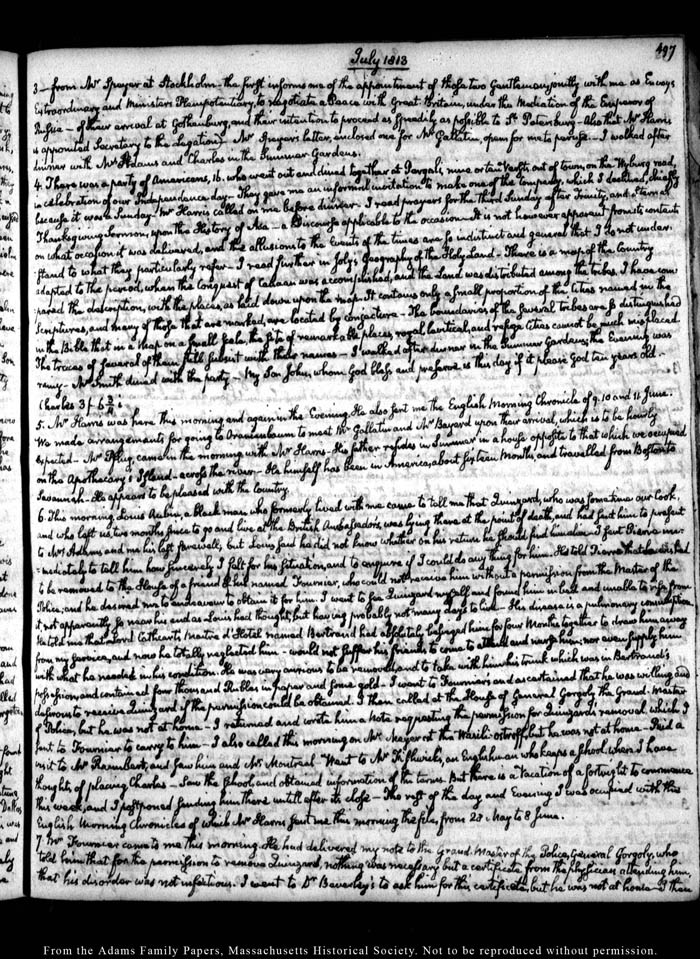 497
July 1813
3 — from Mr Speyer at Stockholm — the first informs me of the appointment of those two Gentlemen jointly with me as Envoys
Extraordinary and Ministers Plenipotentiary, to negotiate a Peace with Great Britain, under the Mediation of the Emperor of
Russia — of their arrival at Gothenburg, and their intention to proceed as speedily as possible to St. Petersburg — Also that Mr Harris
is appointed Secretary to the Legation. Mr Speyer's letter, enclosed one for Mr Gallatin, open for me to peruse. — I walked after
dinner with Mrs Adams and Charles in the Summer Gardens.
4. There was a party of Americans, 16. who went out and dined together at Pargala, nine or ten Versts out of town, on the Wyburg road,
in celebration of our Independence day. They gave me an informal invitation to make one of the company, which I declined, chiefly
because it was Sunday. Mr Harris called on me before dinner. I read prayers for the third Sunday after Trinity, and Sterne's
Thanksgiving Sermon, upon the History of — a Discourse applicable to the occasion. It is not however apparent from its contents
on what occasion it was delivered, and the allusions to the Events of the times are so indistinct and general that I do not under-
stand to what they particularly refer — I read further in Jolys Geography of the Holy Land — There is a map of the Country
adapted to the period, when the conquest of Canaan was accomplished, and the Land was distributed among the tribes. I have com
pared the description, with the places, as laid down upon the map. It contains only a small proportion of the Cities named in the
Scriptures, and many of those that are marked, are located by conjecture — The boundaries of the several tribes are so distinguished
in the Bible that in a Map on a small scale, the site of remarkable places, royal, levitical, and refuge Cities cannot be much misplaced
The traces of several of them still subsist with their names — I walked after dinner in the Summer Gardens; the Evening was
rainy — Mr Smith dined with the party — My Son John, whom God bless and preserve is this day if it please God ten years old.
Charles 3f
5. Mr Harris was here this morning and again in the Evening. He also sent me the English Morning Chronicle of 9. 10 and 11 June.
We made arrangements for going to Oranienbaum to meet Mr Gallatin and Mr Bayard upon their arrival, which is to be hourly
expected — Mr Pflug came in the morning with Mr Harris — His father resides in Summer in a house opposite to that which we occupied
on the Apothecary's Island — across the river — He himself has been in America, about sixteen Months, and travelled from Boston to
Savannah — He appears to be pleased with the Country.
6. This morning Louis Aubin, a black man who formerly lived with me came to tell me that Quinzard, who was sometime our Cook,
and who left us, two months since to go and live at the British Ambassador's, was lying there at the point of death, and had sent him to present
to Mrs Adams and me his last farewell, but Louis said he did not know whether on his return he should find him alive. I sent Pierre im-
mediately to tell him how sincerely I felt for his situation, and to enquire if I could do any thing for him. He told Pierre that he wished
to be removed to the House of a friend of his named Fournier, who could not receive him without a permission from the Master of the
Police, and he desired me to endeavour to obtain it for him. I went to see Quinzard myself and found him in bed and unable to rise from
it, not apparently so near his end as Louis had thought, but having probably not many days to live — His disease is a pulmonary consumption
He told me that Lord Cathcart's Maitre d'Hotel named Bertrand had absolutely besieged him for four Months together to draw him away
from my service, and now he totally neglected him — would not suffer his friends to come to attend and nurse him; nor even supply him
with what he needed in his condition. He was very anxious to be removed, and to take with him his trunk which was in Bertrand's
possession, and contained four thousand Rubles in paper and some gold — I went to Fournier's and ascertained that he was willing and
desirous to receive Quinzard if the permission could be obtained. I then called at the House of General Gorgoly, the Grand-Master
of Police, but he was not at home — I returned and wrote him a Note requesting the permission for Quinzard's removal, which I
sent to Fournier to carry to him — I also called this morning on Mr Meyer at the Wasili-ostroff, but he was not at home — Paid a
visit to Mr Raimbert, and saw him and Mr Montreal — Went to Mr Fishwick's, an Englishman who keeps a school, where I have
thoughts of placing Charles — Saw the school, and obtained information of the terms. But there is a vacation of a fortnight to commence
this week, and I postponed sending him there untill after its close — The rest of the day and Evening I was occupied with the
English Morning Chronicles of which Mr Harris sent me this morning the file, from 20 May to 8 June.
7. Mr Fournier came to me this morning. He had delivered my note to the Grand-Master of the Police, General Gorgoly, who
told him that for the permission to remove Quinzard, nothing was necessary but a certificate from the physician attending him,
that his disorder was not infectious. I went to Dr Beverley's to ask him for this certificate, but he was not at home — I then
From the Adams Family Papers, Massachusetts Historical Society. Not to be reproduced without permission.